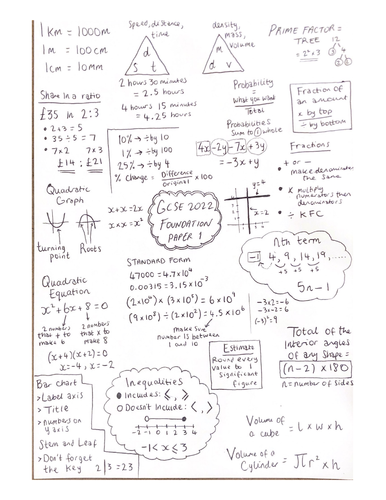 1km = 1000m
1m = 100cm
1cm = 10mm
Speed, distance, time
d
s t
2 hours 30 minutes
= 2.5 hours
4 hours 15 minutes
= 4.25 hours
density, mass, volume
m
d v
PRIME FACTOR TREE
12
= 2² x 3
Share in a ratio
£35 in 2:3
• 2+3=5
• 35÷5=7
• 7x2 7x3
£14 : £21
10% → ÷ by 10
1% → ÷ by 100
25% → ÷ by 4
% Change = Difference / original x 100
Probability
= what you want / Total
Probabilities
Sum to 1 whole
4x - 2y - 7x + 3y
= -3x + y
Fraction of
an amount
x by top
÷ by bottom
Fractions
• + or -
make denominators
the same
• x multiply
numerators then
denominators
• ÷ KFC
Quadratic
Graph
turning
point
Roots
x + x = 2x
x x x = x²
GCSE 2022
FOUNDATION
PAPER 1
y=4
x=2
nth term
-1 4, 9, 14, 19, ....
+5 +5 +5
5n - 1
STANDARD FORM
47000 = 4.7x10⁴
0.00315 = 3.15x10⁻³
(2x10⁴) x (3x10⁵) = 6x10⁹
(9x10⁸) ÷ (2x10²) = 4.5x10⁶
make sure
number is between
1 and 10
Quadratic
Equation
x² + 6x + 8 = 0
2 numbers
that + to
make 6
2 numbers
that x to
make 8
(x+4)(x+2) = 0
x = -4, x = -2
-3x2 = -6
-3x-2 = 6
(-3)² = 9
Estimate
Round every
value to 1
Significant
figure
Total of the
interior angles
of any shape =
(n-2) x 180
n = number of sides
Bar Chart
> Label axis
> Title
> numbers on
y axis
Stem and Leaf
> Don't forget
the key 2|3 = 23
Inequalities
● Includes: ≤, ≥
○ Doesn't Include: <, >
-2 -1 0 1 2 3 4
-1 < x ≤ 3
Volume of
a cube = l x w x h
Volume of a
Cylinder = πr² x h